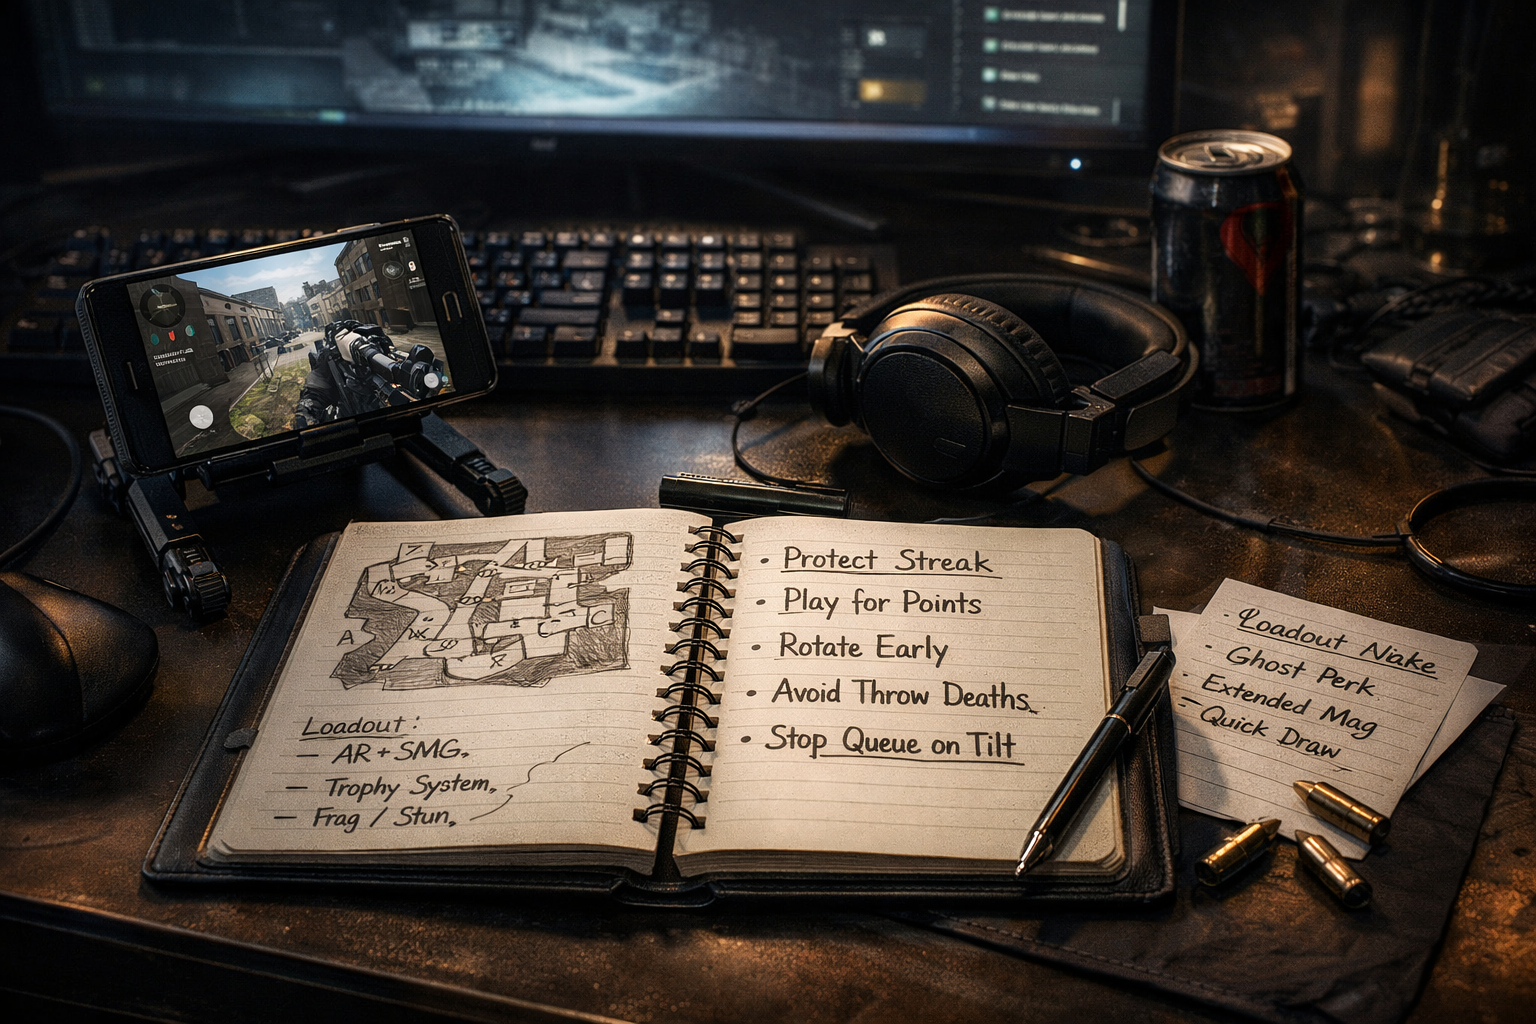 A
C
Loadout:
— AR + SMG.
— Trophy System.
— Frag / Stun.
• Protect Streak
• Play for Points
• Rotate Early
• Avoid Throw Deaths.
• Stop Queue on Tilt
· Loadout Niake
· Ghost Perk
· Extended Mag
– Quick Draw